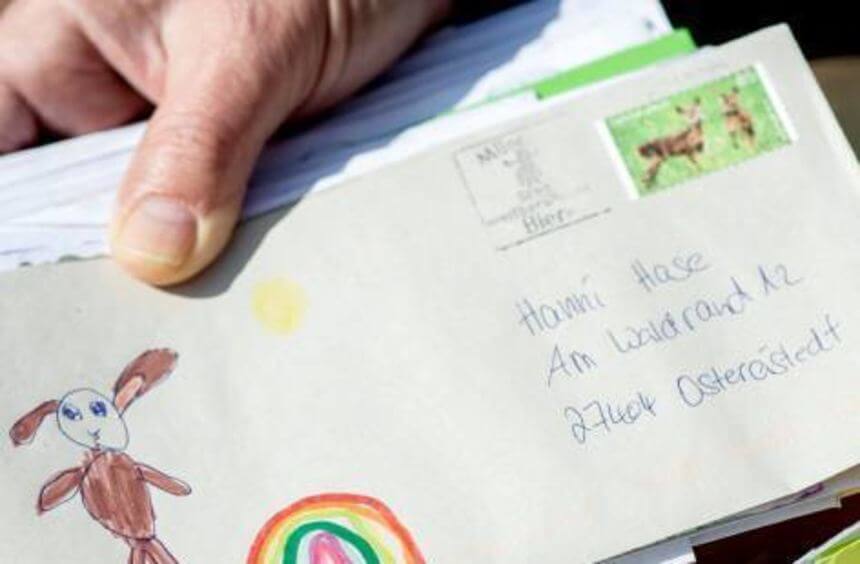 Bier.
Hanni Hase
Am Waldrand 12
27404 Ostereistedt